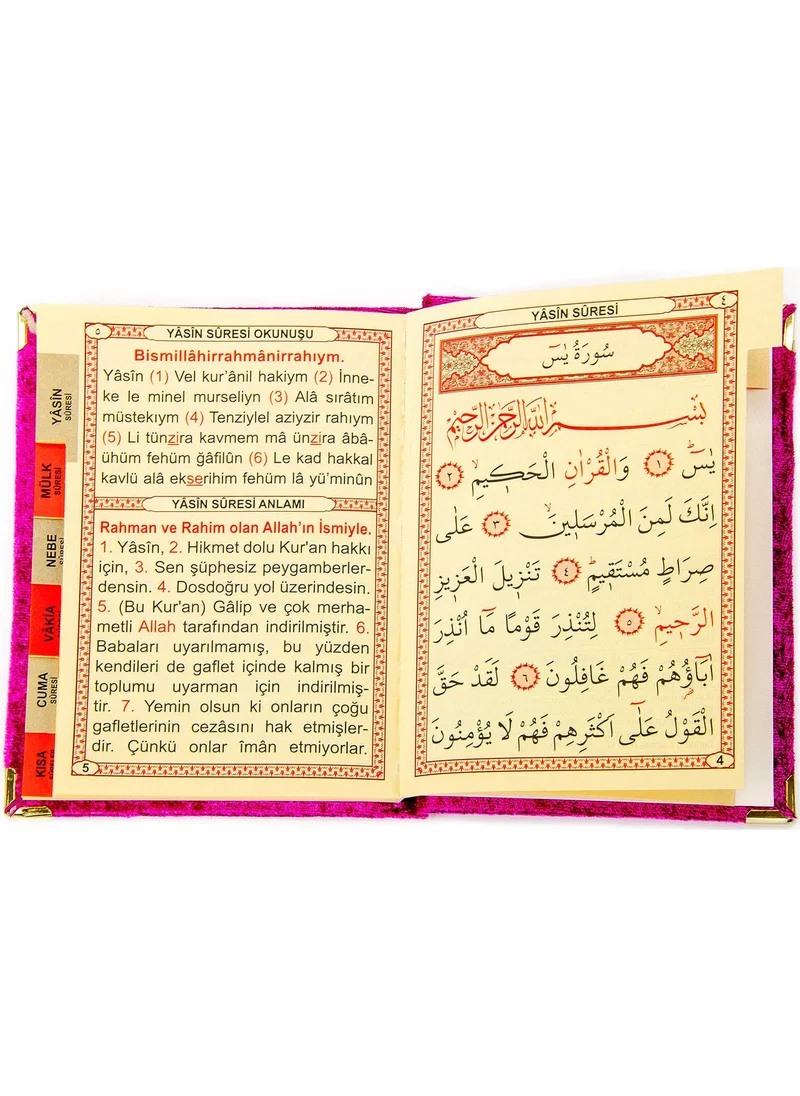 YÂSİN
SÛRESİ
MÜLK
SÛRESİ
NEBE
SÛRESİ
VÂKIA
CUMA
SÛRESİ
KISA
٥
YÂSİN SÛRESİ OKUNUŞU
Bismillâhirrahmânirrahıym.
Yâsîn (1) Vel kur’ânil hakiym (2) İnne-
ke le minel murseliyn (3) Alâ sırâtım
müstekıym (4) Tenziylel aziyzir rahıym
(5) Li tünzira kavmem mâ ünzira âbâ-
ühüm fehüm ğafilûn (6) Le kad hakkal
kavlü alâ ekserihim fehüm lâ yü’minûn
YÂSİN SÛRESİ ANLAMI
Rahman ve Rahim olan Allah’ın İsmiyle.
1. Yâsîn, 2. Hikmet dolu Kur'an hakkı
için, 3. Sen şüphesiz peygamberler-
densin. 4. Dosdoğru yol üzerindesin.
5. (Bu Kur'an) Gâlip ve çok merha-
metli Allah tarafından indirilmiştir. 6.
Babaları uyarılmamış, bu yüzden
kendileri de gaflet içinde kalmış bir
toplumu uyarman için indirilmiş-
tir. 7. Yemin olsun ki onların çoğu
gafletlerinin cezâsını hak etmişler-
dir. Çünkü onlar îmân etmiyorlar.
5
٤
YÂSİN SÛRESİ
سُورَةُ يٰسٓ
بِسْمِ اللّٰهِ الرَّحْمٰنِ الرَّحِيمِ
يٰسٓ ﴿١﴾ وَالْقُرْاٰنِ الْحَكِيمِۙ ﴿٢﴾
اِنَّكَ لَمِنَ الْمُرْسَلِينَۙ ﴿٣﴾ عَلٰى
صِرَاطٍ مُسْتَقِيمٍۜ ﴿٤﴾ تَنْزِيلَ الْعَزِيزِ
الرَّحِيمِۙ ﴿٥﴾ لِتُنْذِرَ قَوْمًا مَٓا اُنْذِرَ
اٰبَٓاؤُهُمْ فَهُمْ غَافِلُونَ ﴿٦﴾ لَقَدْ حَقَّ
الْقَوْلُ عَلٰٓى اَكْثَرِهِمْ فَهُمْ لَا يُؤْمِنُونَ
4